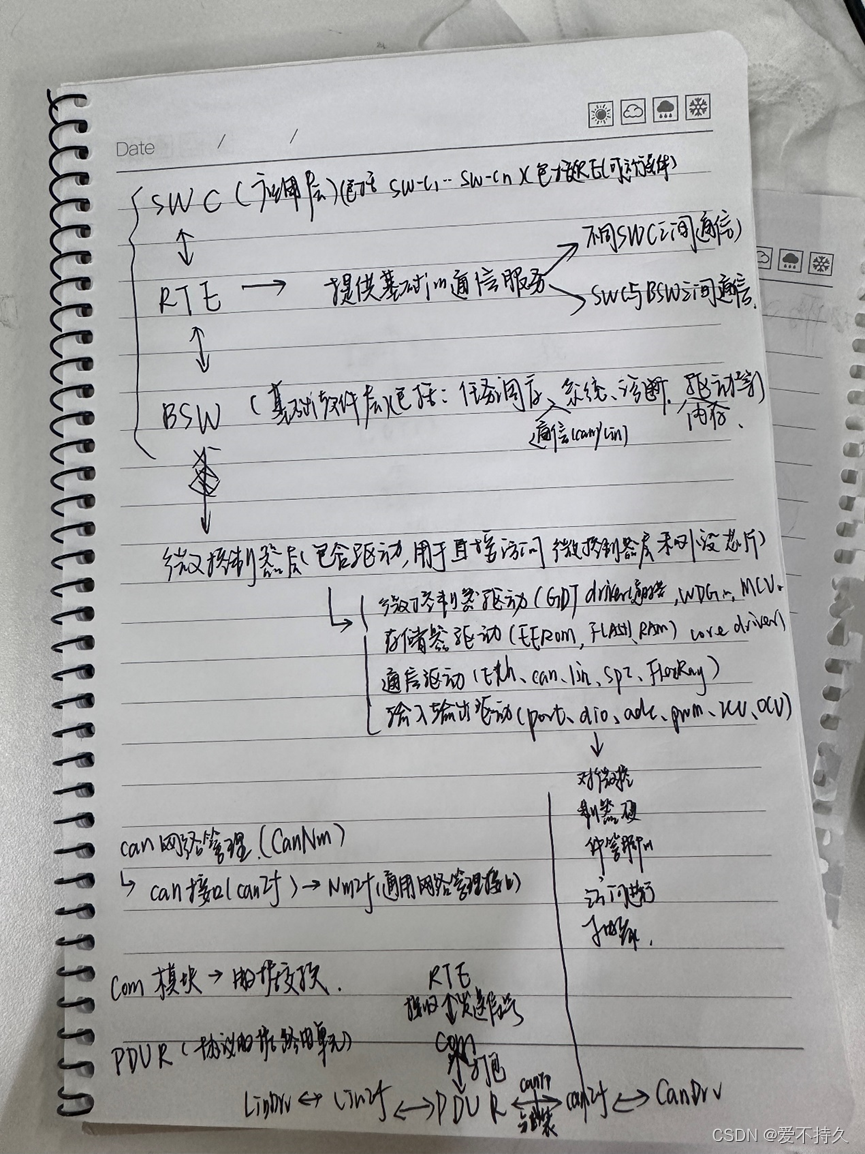 Date / /
SWC (应用层)(包括 SW-C1 … SW-Cn)(包括RE(可运行实体)
RTE → 提供基础的通信服务
不同SWC之间通信)
SWC与BSW之间通信.
BSW (基础软件层)(包括: 任务调度、系统、诊断、驱动等)
通信(can/lin) 内存.
微控制器层(包含驱动,用于直接访问微控制器层和外设芯片)
微控制器驱动(GDT driver, WDG, MCU.
存储器驱动(EEROM, FLASH, RAM) core driver)
通信驱动(Eth、can、lin、SPI、FlexRay)
输入输出驱动(port、dio、adc、pwm、ICU、OCU)
对微控
制器硬
件管脚的
访问进行
can 网络管理.(CanNm)
↳ can 接口(canIf) → NmIf(通用网络管理接口)
Com 模块 → 数据交换.
RTE
接收 发送信号
PDUR (协议数据路由单元)
com
打包
LinDrv ↔ LinIf ↔ PDUR ↔ canIf ↔ CanDrv
canTP